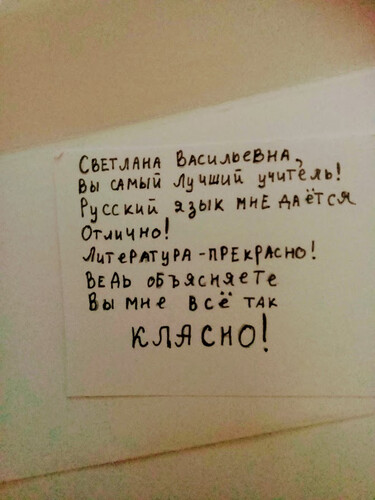 Светлана Васильевна,
Вы самый лучший учитель!
Русский язык мне даётся
Отлично!
Литература - прекрасно!
Ведь объясняете
Вы мне всё так
КЛАСНО!